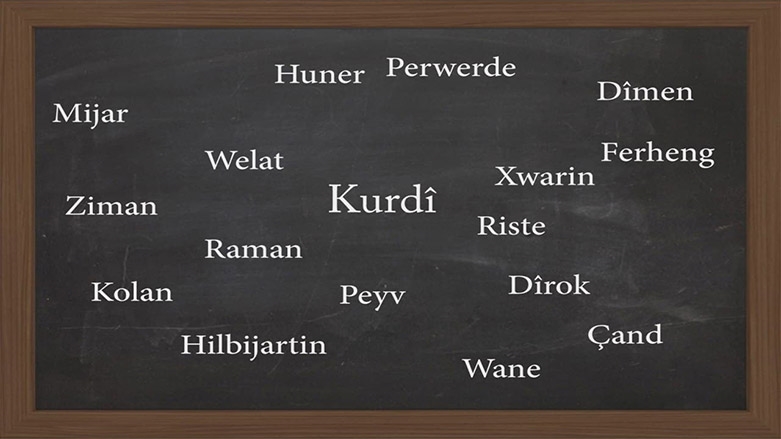 Huner
Perwerde
Dîmen
Mijar
Welat
Ferheng
Xwarin
Ziman
Kurdî
Riste
Raman
Kolan
Peyv
Dîrok
Hilbijartin
Çand
Wane